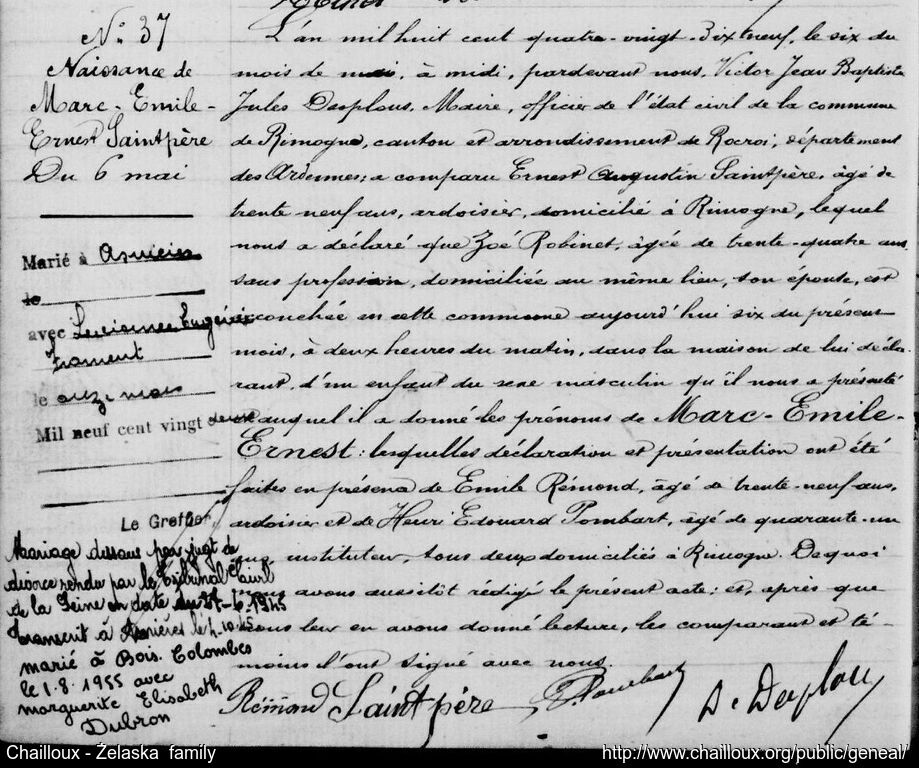 N° 37
Naissance de
Marc-Emile-
Ernest Saintpère
Du 6 mai
Marié à Asnières
le
avec Lucienne Eugénie
Froment
le onze mars
Mil neuf cent vingt deux
Le Greffier
Mariage dissous par jugt de
divorce rendu par le Tribunal Civil
de la Seine en date du 27-6-1945
Transcrit à Asnières le 4-10-45
marié à Bois-Colombes
le 1-8-1955 avec
marguerite Elisabeth
Dubron
L'an mil huit cent quatre-vingt-dix neuf, le six du
mois de mai, à midi, pardevant nous, Victor Jean Baptiste
Jules Desplous, Maire, officier de l'état civil de la commune
de Rimogne, canton et arrondissement de Rocroi, département
des Ardennes; a comparu Ernest Augustin Saintpère, âgé de
trente neuf ans, ardoisier, domicilié à Rimogne, lequel
nous a déclaré que Zoé Robinet, âgée de trente-quatre ans
sans profession, domiciliée au même lieu, son épouse, est
accouchée en cette commune aujourd'hui six du présent
mois, à deux heures du matin, dans la maison de lui décla-
rant, d'un enfant du sexe masculin qu'il nous a présenté
et auquel il a donné les prénoms de Marc-Emile-
Ernest: lesquelles déclaration et présentation ont été
faites en présence de Emile Rémond, âgé de trente-neuf ans,
ardoisier et de Henri Edouard Pombart, âgé de quarante-un
ans, instituteur, tous deux domiciliés à Rimogne. De quoi
nous avons aussitôt rédigé le présent acte: et, après que
nous leur en avons donné lecture, les comparant et té-
moins l'ont signé avec nous.
Rémond Saintpère Pombart D. Desplous
Chailloux - Żelaska family
http://www.chailloux.org/public/geneal/